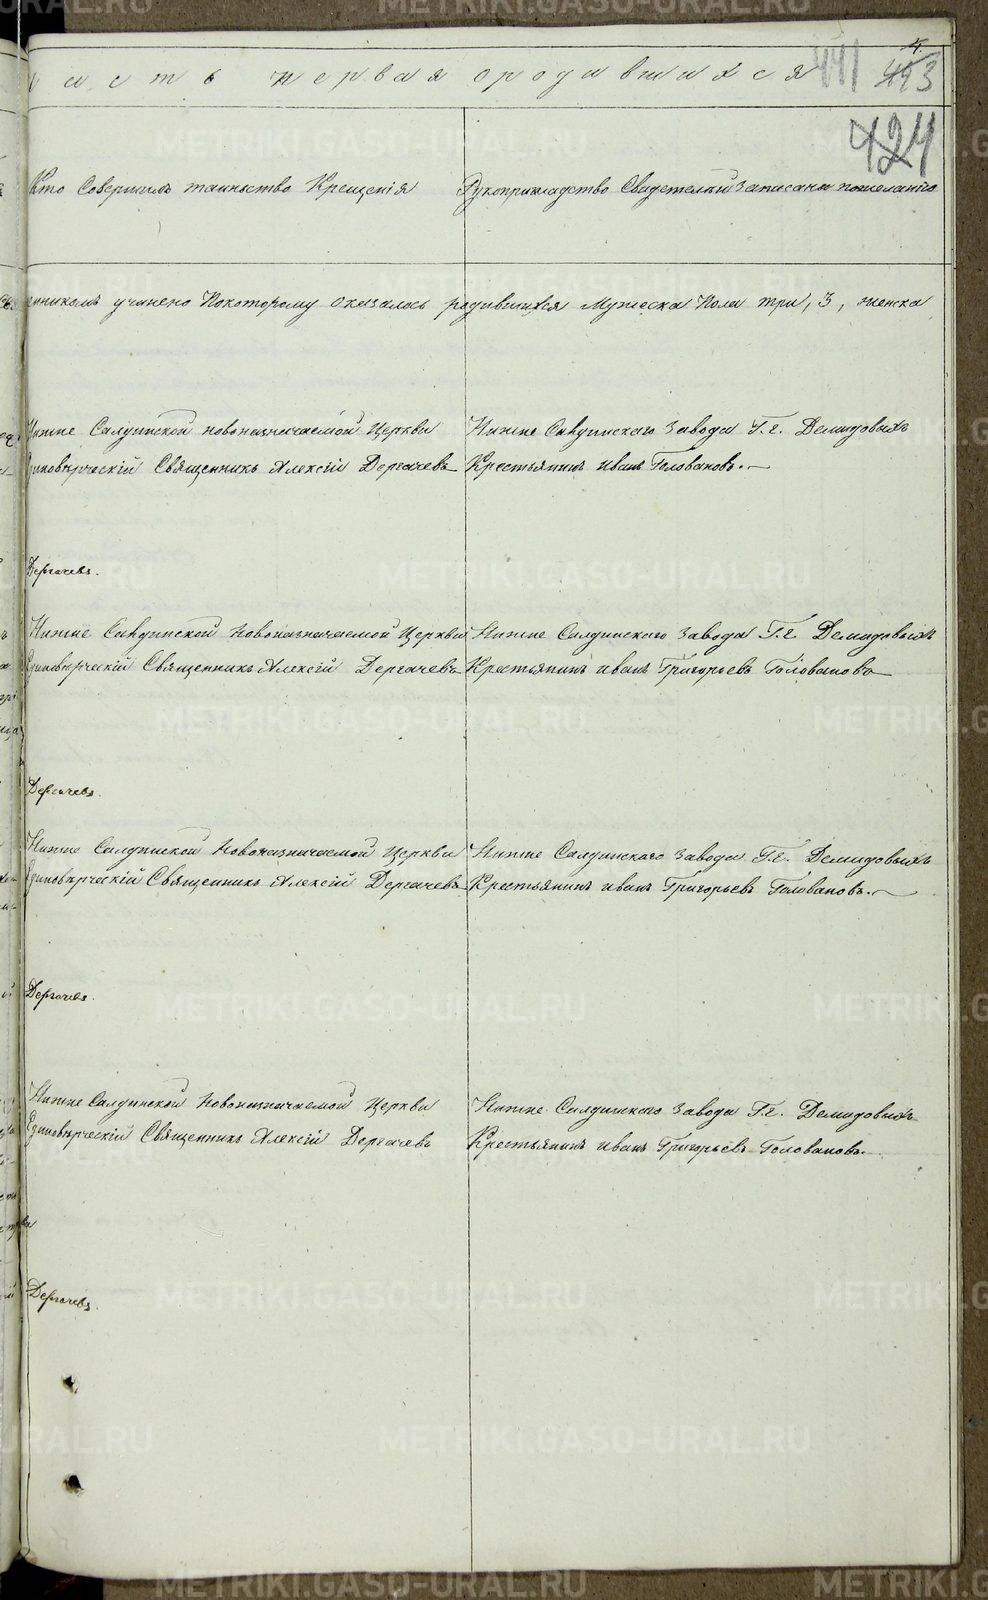 часть первая ородившихся
441
493
4.
424
Кто Совершилъ таиньство Крещенiя
Рукоприкладство Свидетелей Записани пожеланiю
енникомъ учинено Покоторому Оказалось родившихся Мужеска Пола три, 3, женска
Нижне Салдинской новоназначаемой Церкви
Единовѣрческiй Священникъ Алексiй Дергачевъ
Нижне Салдинскаго Завода Г.г. Демидовыхъ
Крестьянинъ иванъ Головановъ.
Дергачевъ.
Нижне Салдинской Новоназначаемой Церкви
Единовѣрческiй Священникъ Алексiй Дергачевъ
Нижне Салдинскаго Завода Г.г. Демидовыхъ
Крестьянинъ иванъ Григорьевъ Головановъ
Дергачевъ.
Нижне Салдинской Новоназначаемой Церкви
Единовѣрческiй Священникъ Алексiй Дергачевъ
Нижне Салдинскаго Завода Г.г. Демидовыхъ
Крестьянинъ иванъ Григорьевъ Головановъ.
Дергачевъ.
Нижне Салдинской Новоназначаемой Церкви
Единовѣрческiй Священникъ Алексiй Дергачевъ
Нижне Салдинскаго Завода Г.г. Демидовыхъ
Крестьянинъ иванъ Григорьевъ Головановъ.
Дергачевъ.
METRIKI.GASO-URAL.RU